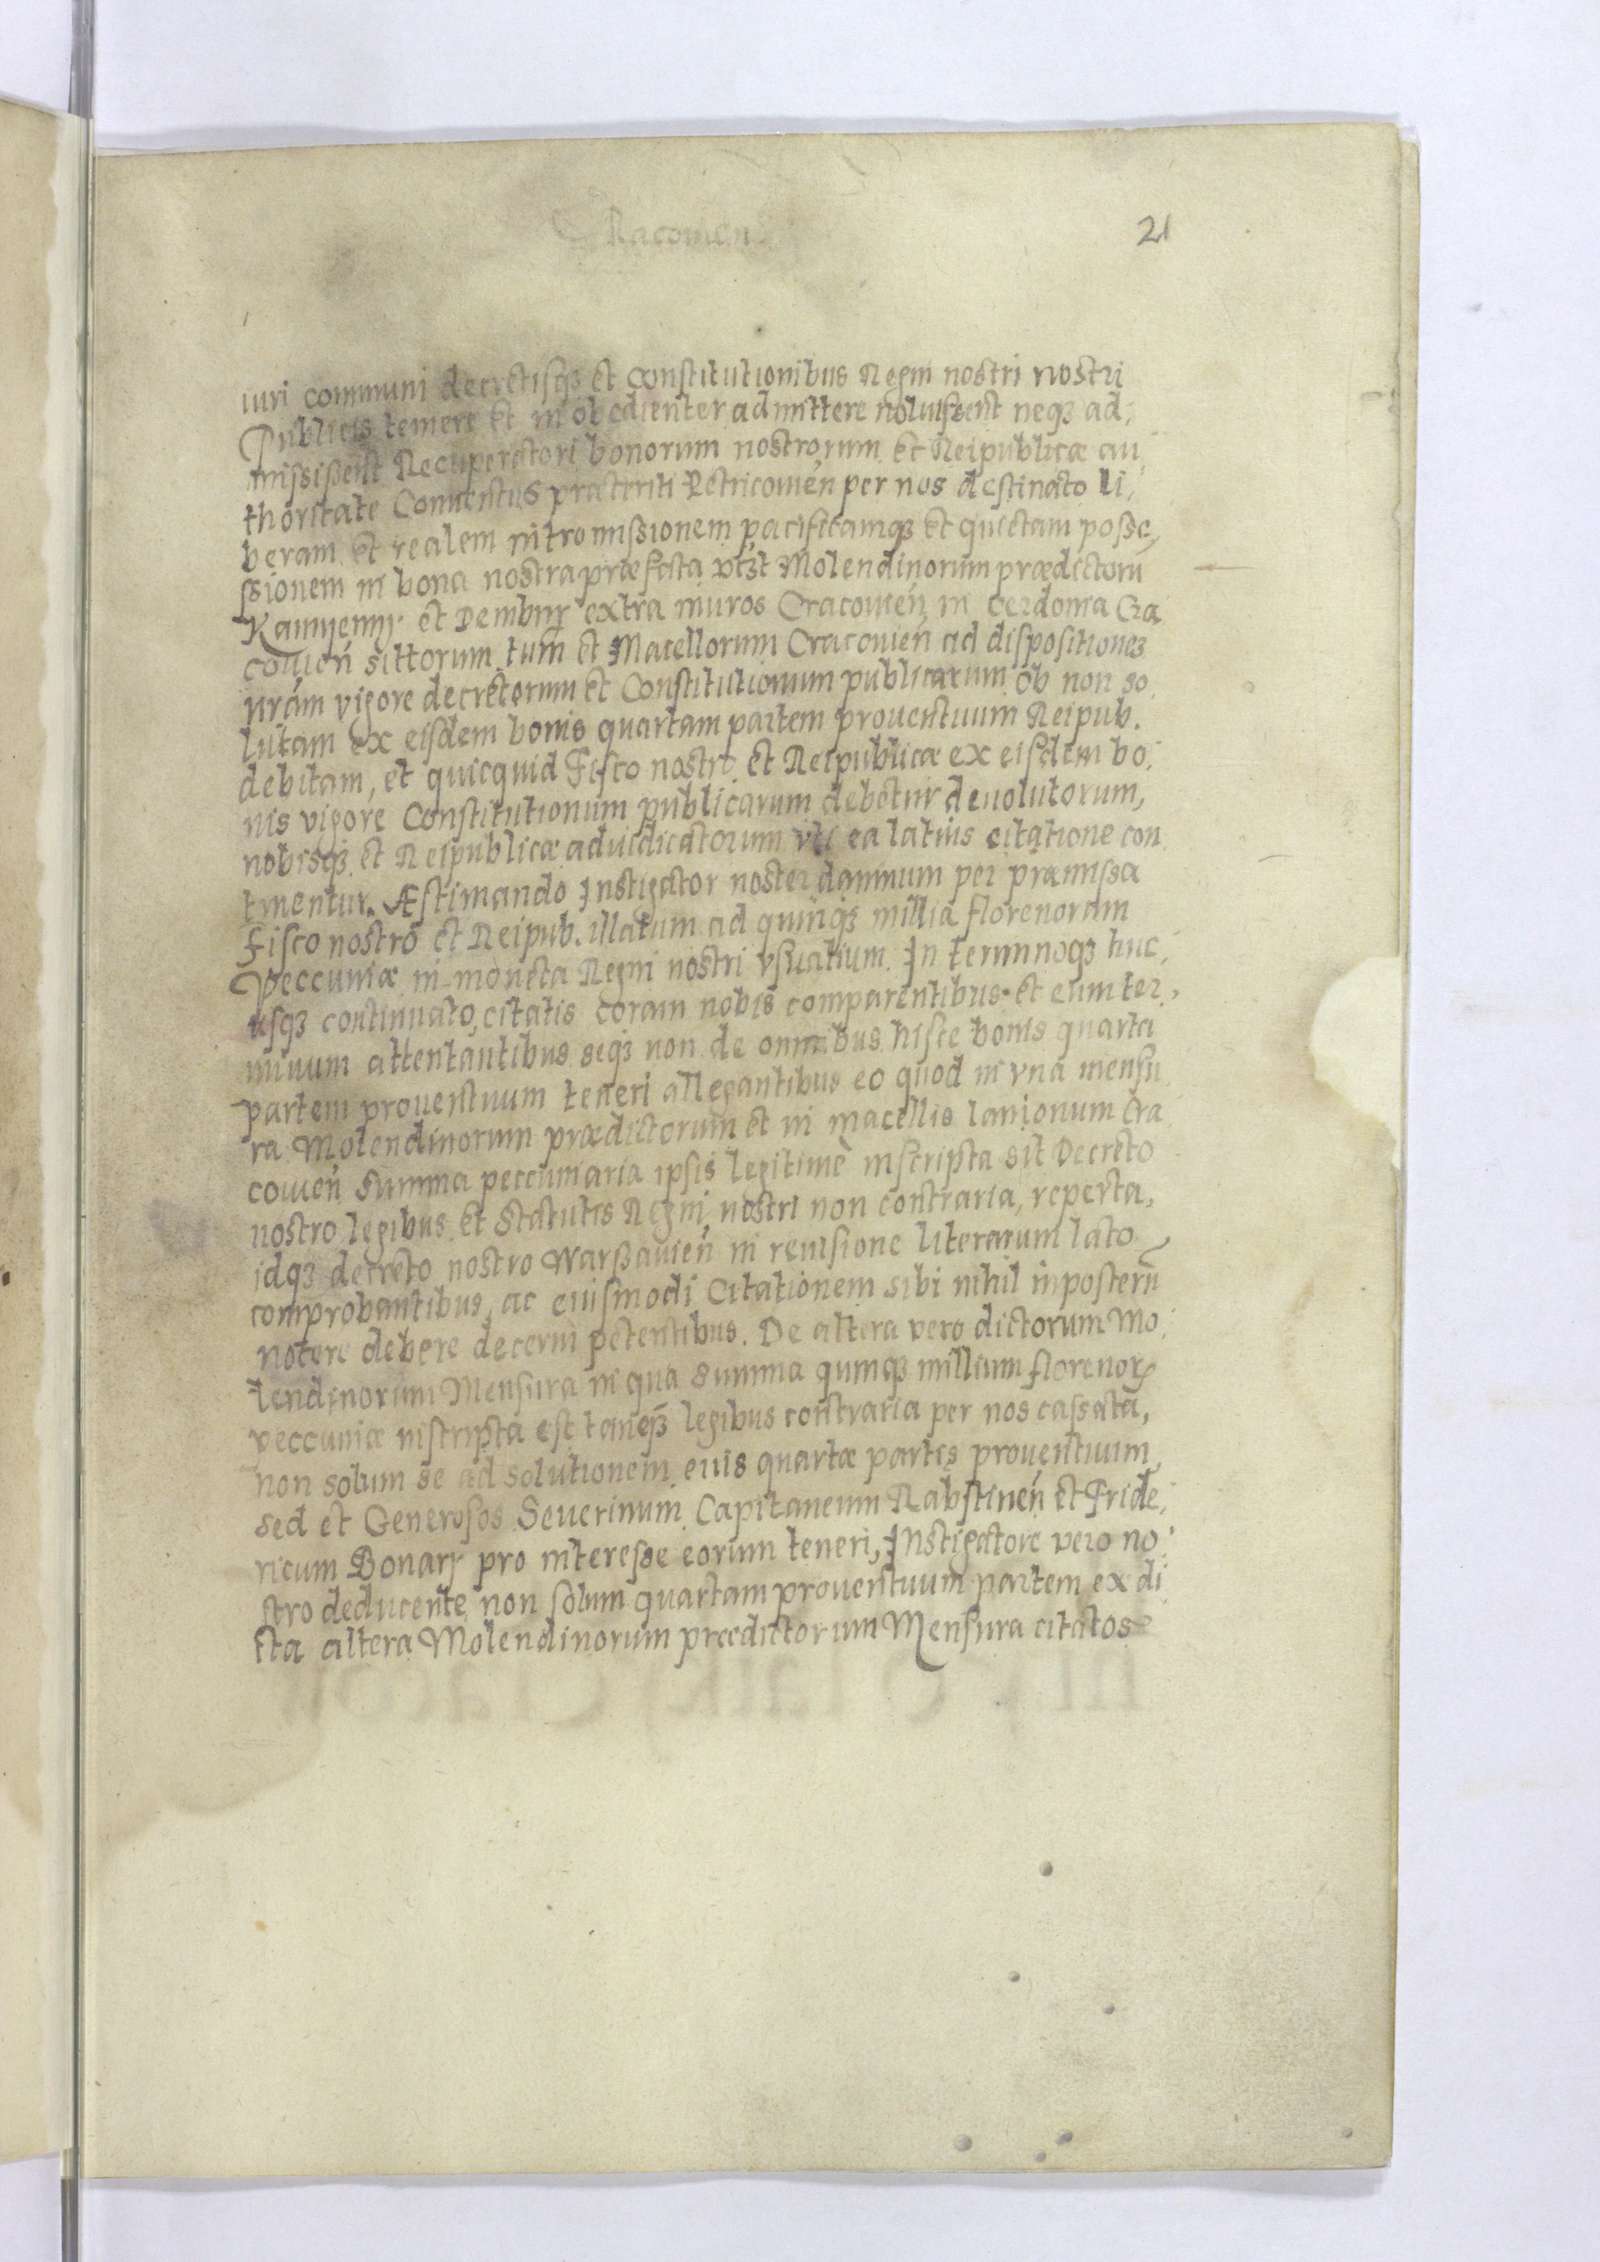 Cracouien
21
iuri communi decretisqȝ et Constitutionibus Regni nostri nostri
Publicis temere et inobedienter admittere noluissent neqȝ ad,
missisent Recuperatori bonorum nostrorum et Reipublicæ au
thoritate Conuentus præteriti Petricouień per nos destinato li,
beram et realem intromissionem pacificamqȝ et quietam posse,
ssionem in bona nostra præfata vcȝt Molendinorum prædictorū
Kamyenny et Dembny extra muros Cracouień in cerdonia Cra
couień sittorum tum et Macellorum Cracouień ad dispositionē
nrām vigore decretorum et Constitutionum publicarum ob non so
lutam ex eisdem bonis quartam partem prouentuum Reipub.
debitam, et quicquid Fisco nostro et Reipublicæ ex eisdem bo,
nis vigore Constitutionum publicarum debetur deuolutorum,
nobisqȝ et Reipublicæ adiudicatorum vti ea latius citatione con
tinentur. Æstimando Instigator noster damnum per præmissa
Fisco nostro et Reipub. illatum ad quinqȝ millia florenorum
Peccuniæ in moneta Regni nostri vsualium. In terminoqȝ huc,
usqȝ continuato, citatis coram nobis comparentibus et eum ter,
minum attentantibus seqȝ non de omnibus hisce bonis quarta
partem prouentuum teneri allegantibus eo quod in vna mensu
ra Molendinorum prædictorum et in macellis lanionum Cra
couień summa peccuniaria ipsis legitimè inscripta sit Decreto
nostro legibus et Statutis Regni nostri non contraria, reperta,
idqȝ decreto nostro Warssauień in reuisione literarum lato
comprobantibus, ac eiusmodi Citationem sibi nihil inposterū
nocere debere decerni petentibus. De altera vero dictorum Mo,
lendinorum Mensura in qua summa quinqȝ millium florenorꝝ
peccuniæ inscripta est tanqȝ legibus contraria per nos cassata,
non solum se ad solutionem eius quartæ partis prouentuum,
sed et Generosos Seuerinum Capitaneum Rabstineń et Fride,
ricum Bonary pro interesse eorum teneri, Instigatore vero no,
stro deducente non solum quartam prouentuum partem ex di
cta altera Molendinorum prædictorum Mensura citatos